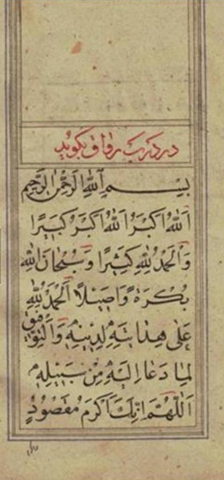 در درب رقاق بگوید
بِسْمِ اللهِ الرَّحْمٰنِ الرَّحِيْمِ
اَللهُ اَكْبَرُ اَللهُ اَكْبَرُ كَبِيْرًا
وَالْحَمْدُ لِلّٰهِ كَثِيْرًا وَسُبْحَانَ اللهِ
بُكْرَةً وَاَصِيْلًا اَلْحَمْدُ لِلّٰهِ
عَلٰى هِدَايَتِهِ لِدِيْنِهِ وَالتَّوْفِيْقِ
لِمَا دَعَا اِلَيْهِ مِنْ سَبِيْلِهِ
اَللّٰهُمَّ اِنَّكَ اَكْرَمُ مَقْصُوْدٍ